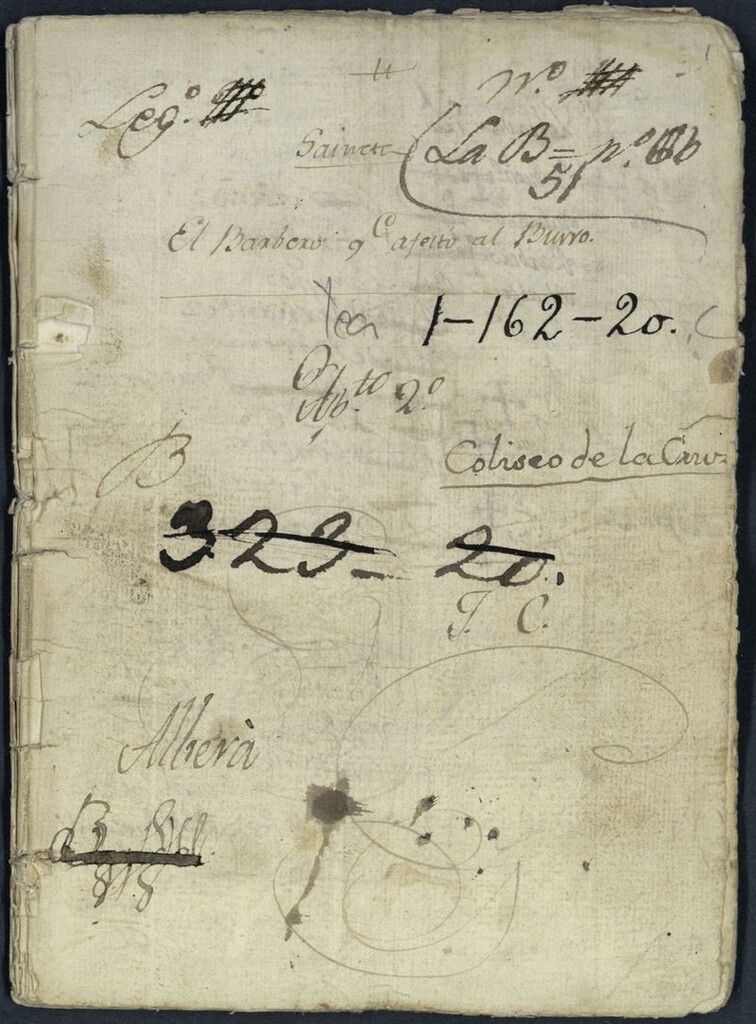 Leg.º
N.º
Sainete
La B= n.º
51
El Barbero q afeitó al Burro.
Tea 1-162-20.
Ap.to 2.º
B
Coliseo de la Cruz
323- 20.
T. C.
Alberà
B